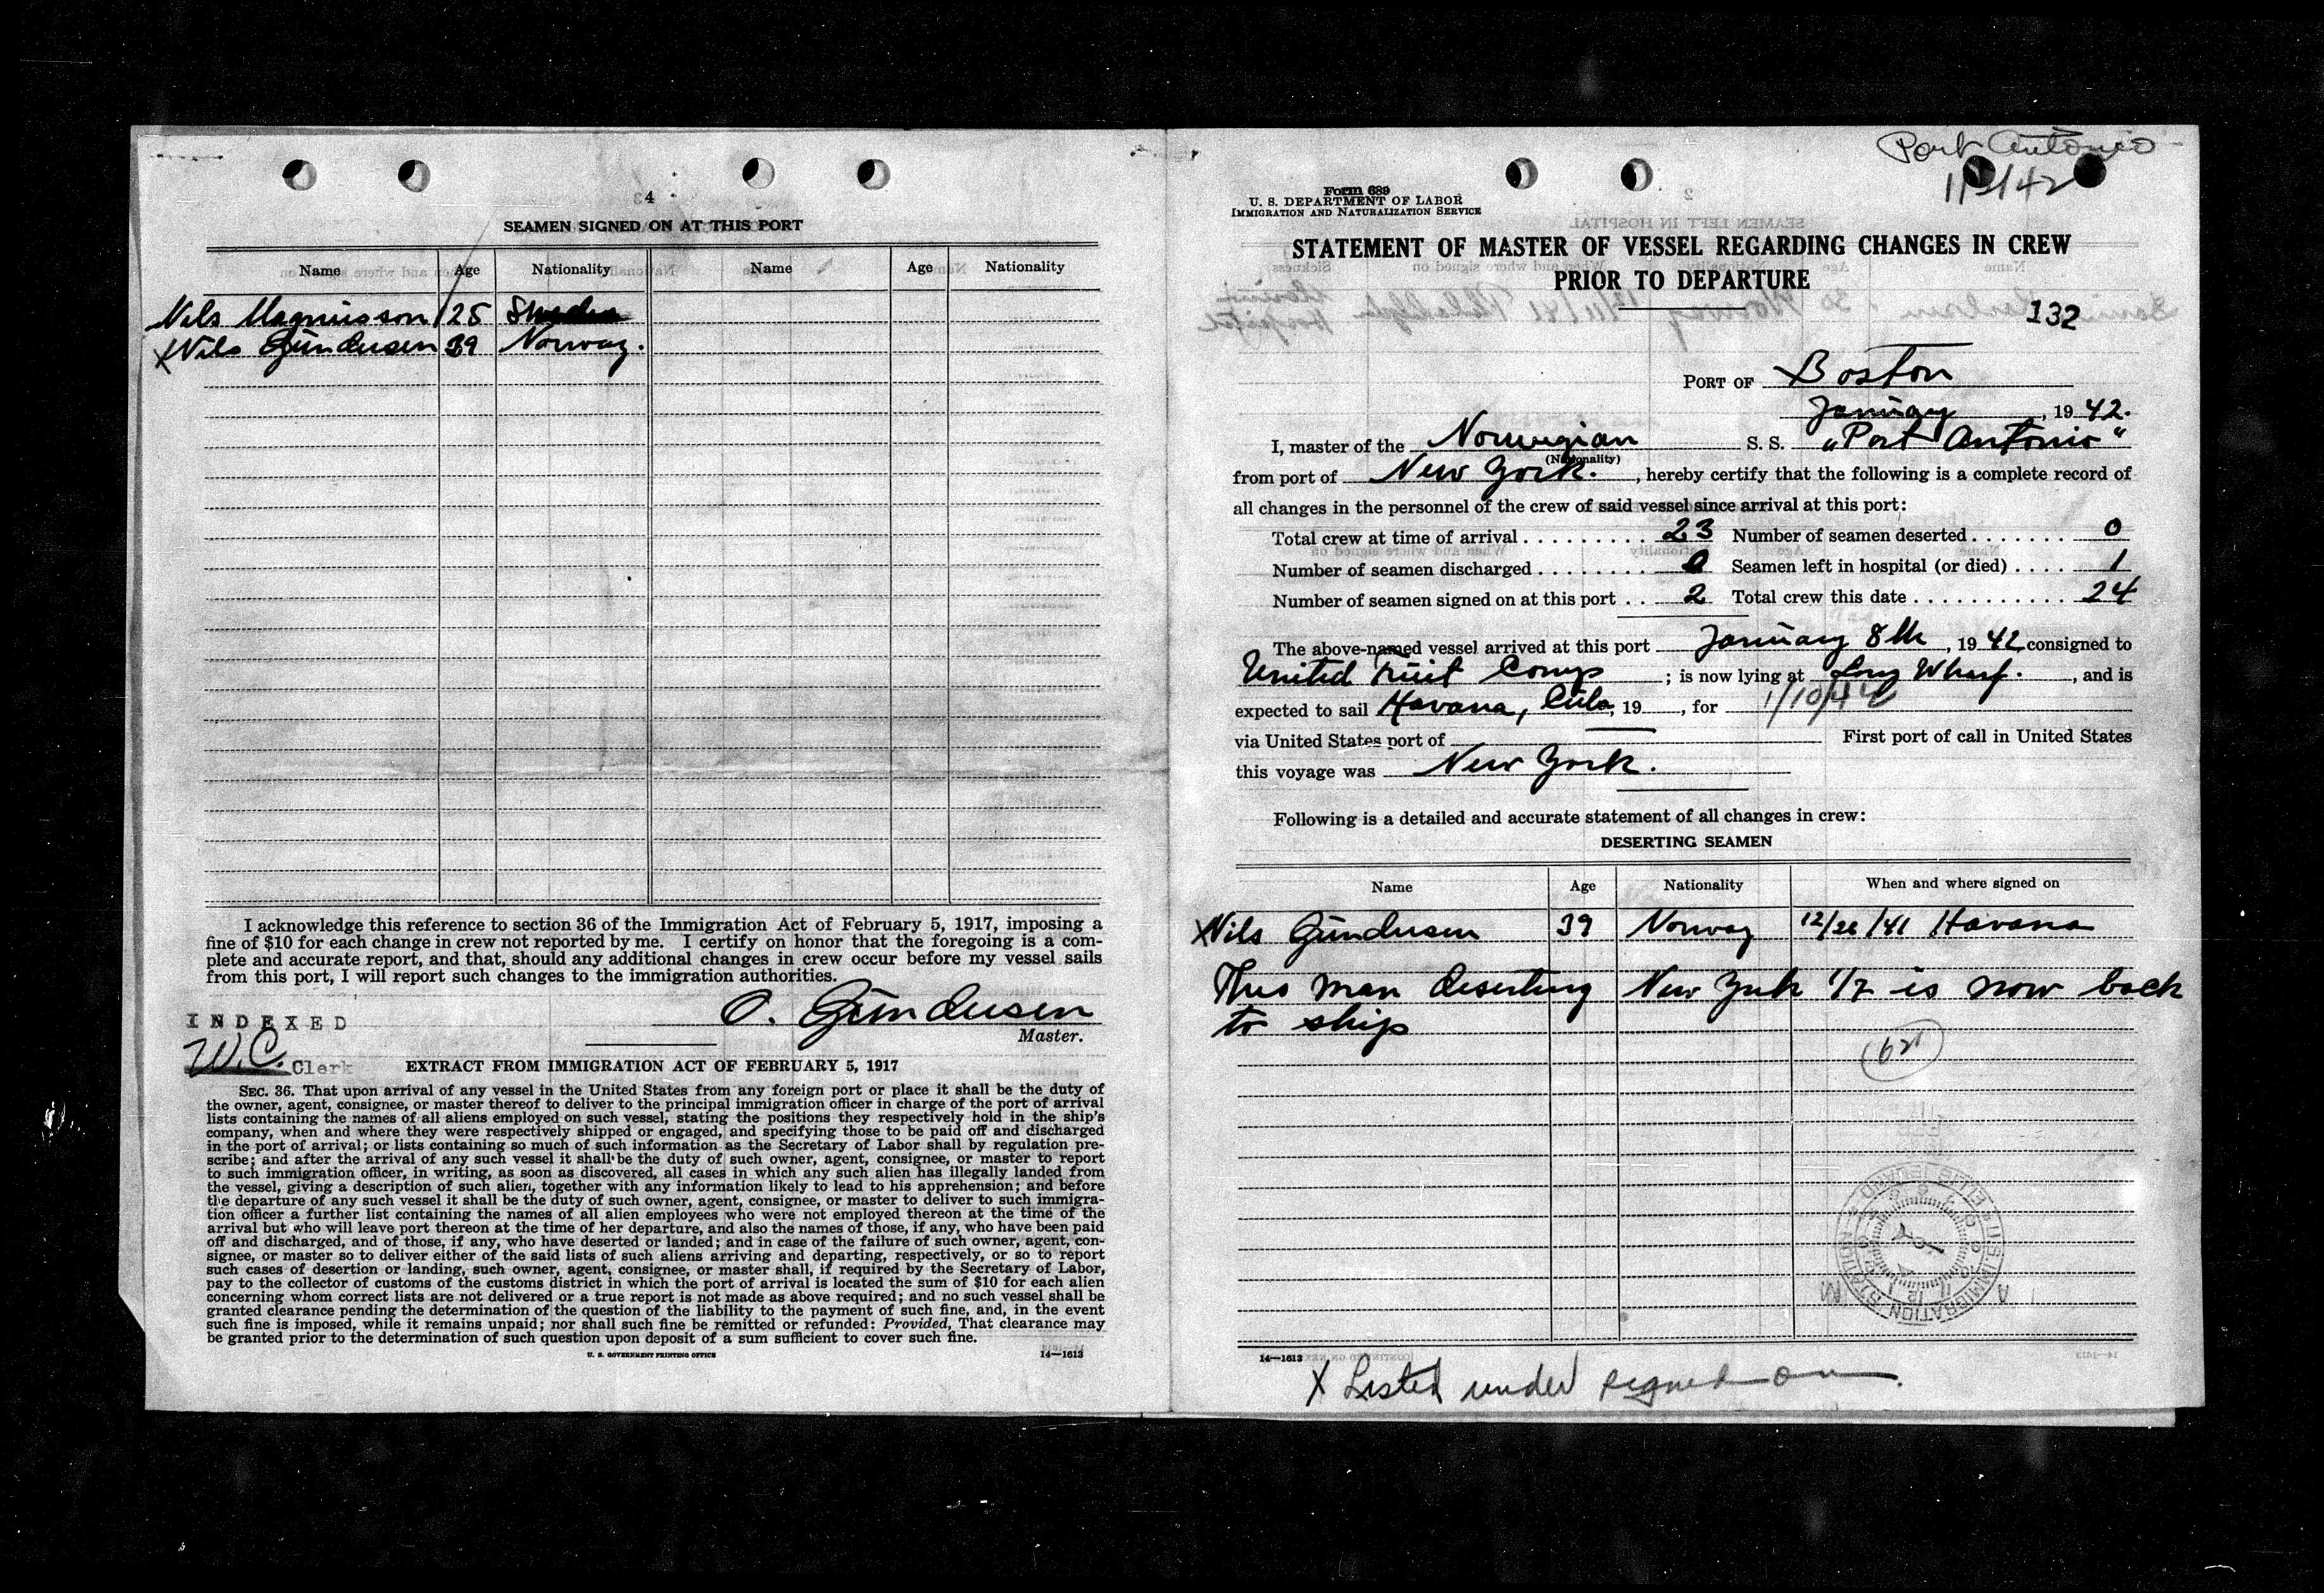 4
SEAMEN SIGNED ON AT THIS PORT
Name Age Nationality Name Age Nationality
Nils Magnusson 25 Sweden
X Nils Gundersen 39 Norway.
I acknowledge this reference to section 36 of the Immigration Act of February 5, 1917, imposing a
fine of $10 for each change in crew not reported by me. I certify on honor that the foregoing is a com-
plete and accurate report, and that, should any additional changes in crew occur before my vessel sails
from this port, I will report such changes to the immigration authorities.
O. Gundersen
Master.
INDEXED
W.C. Clerk
EXTRACT FROM IMMIGRATION ACT OF FEBRUARY 5, 1917
SEC. 36. That upon arrival of any vessel in the United States from any foreign port or place it shall be the duty of
the owner, agent, consignee, or master thereof to deliver to the principal immigration officer in charge of the port of arrival
lists containing the names of all aliens employed on such vessel, stating the positions they respectively hold in the ship's
company, when and where they were respectively shipped or engaged, and specifying those to be paid off and discharged
in the port of arrival; or lists containing so much of such information as the Secretary of Labor shall by regulation pre-
scribe; and after the arrival of any such vessel it shall be the duty of such owner, agent, consignee, or master to report
to such immigration officer, in writing, as soon as discovered, all cases in which any such alien has illegally landed from
the vessel, giving a description of such alien, together with any information likely to lead to his apprehension; and before
the departure of any such vessel it shall be the duty of such owner, agent, consignee, or master to deliver to such immigra-
tion officer a further list containing the names of all alien employees who were not employed thereon at the time of the
arrival but who will leave port thereon at the time of her departure, and also the names of those, if any, who have been paid
off and discharged, and of those, if any, who have deserted or landed; and in case of the failure of such owner, agent, con-
signee, or master so to deliver either of the said lists of such aliens arriving and departing, respectively, or so to report
such cases of desertion or landing, such owner, agent, consignee, or master shall, if required by the Secretary of Labor,
pay to the collector of customs of the customs district in which the port of arrival is located the sum of $10 for each alien
concerning whom correct lists are not delivered or a true report is not made as above required; and no such vessel shall be
granted clearance pending the determination of the question of the liability to the payment of such fine, and, in the event
such fine is imposed, while it remains unpaid; nor shall such fine be remitted or refunded: Provided, That clearance may
be granted prior to the determination of such question upon deposit of a sum sufficient to cover such fine.
U. S. GOVERNMENT PRINTING OFFICE 14—1613
Port Antonio
Form 689
U. S. DEPARTMENT OF LABOR
IMMIGRATION AND NATURALIZATION SERVICE
STATEMENT OF MASTER OF VESSEL REGARDING CHANGES IN CREW
PRIOR TO DEPARTURE
132
PORT OF Boston
January, 19 42.
I, master of the Norwegian S. S. "Port Antonio"
(Nationality)
from port of New York., hereby certify that the following is a complete record of
all changes in the personnel of the crew of said vessel since arrival at this port:
Total crew at time of arrival 23 Number of seamen deserted 0
Number of seamen discharged 0 Seamen left in hospital (or died) 1
Number of seamen signed on at this port 2 Total crew this date 24
The above-named vessel arrived at this port January 8th, 19 42 consigned to
United Fruit Comp; is now lying at Long Wharf., and is
expected to sail Havana, Cuba, 19, for 1/10/42
via United States port of First port of call in United States
this voyage was New York.
Following is a detailed and accurate statement of all changes in crew:
DESERTING SEAMEN
Name Age Nationality When and where signed on
X Nils Gundersen 39 Norway 12/26/41 Havana
This man deserting New York 1/7 is now back
to ship
14—1613
X Listed under signed on.